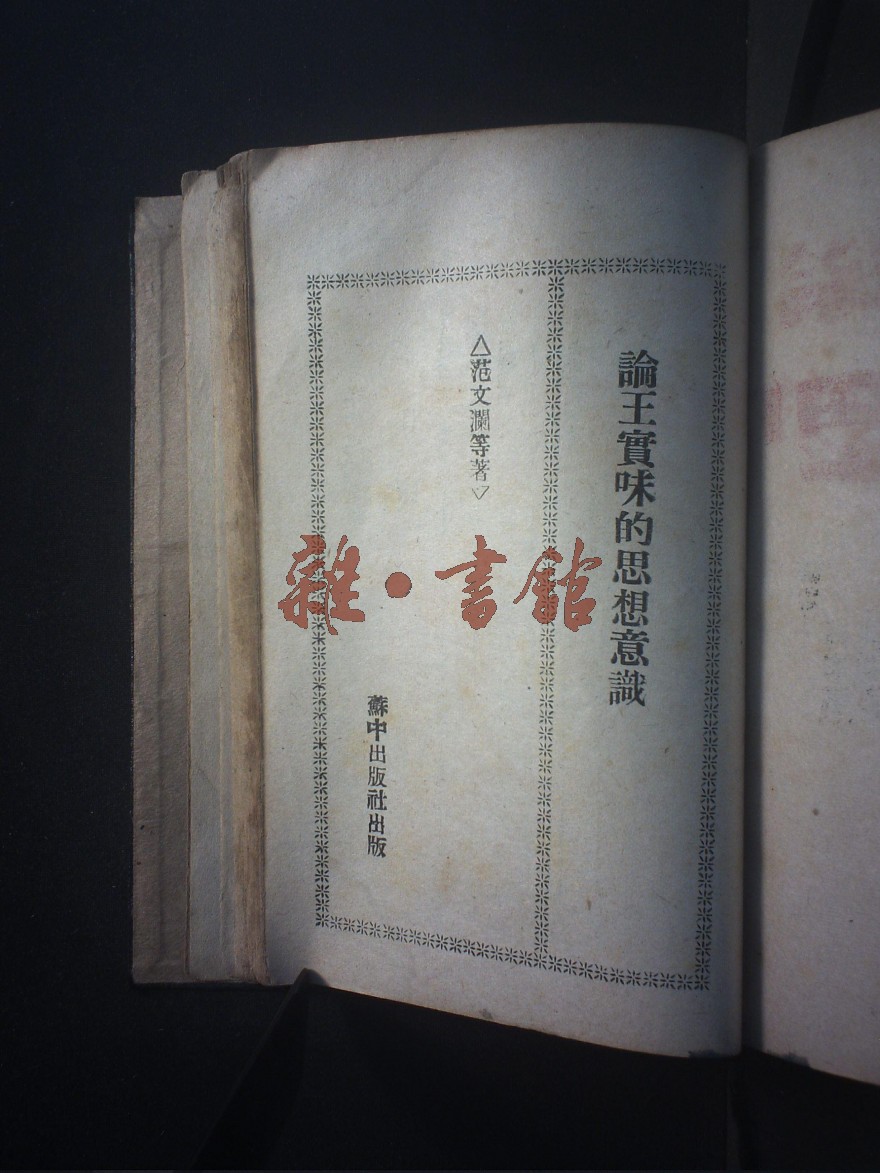 論王實味的思想意識
△范文瀾等著▽
蘇中出版社出版
雜·書館